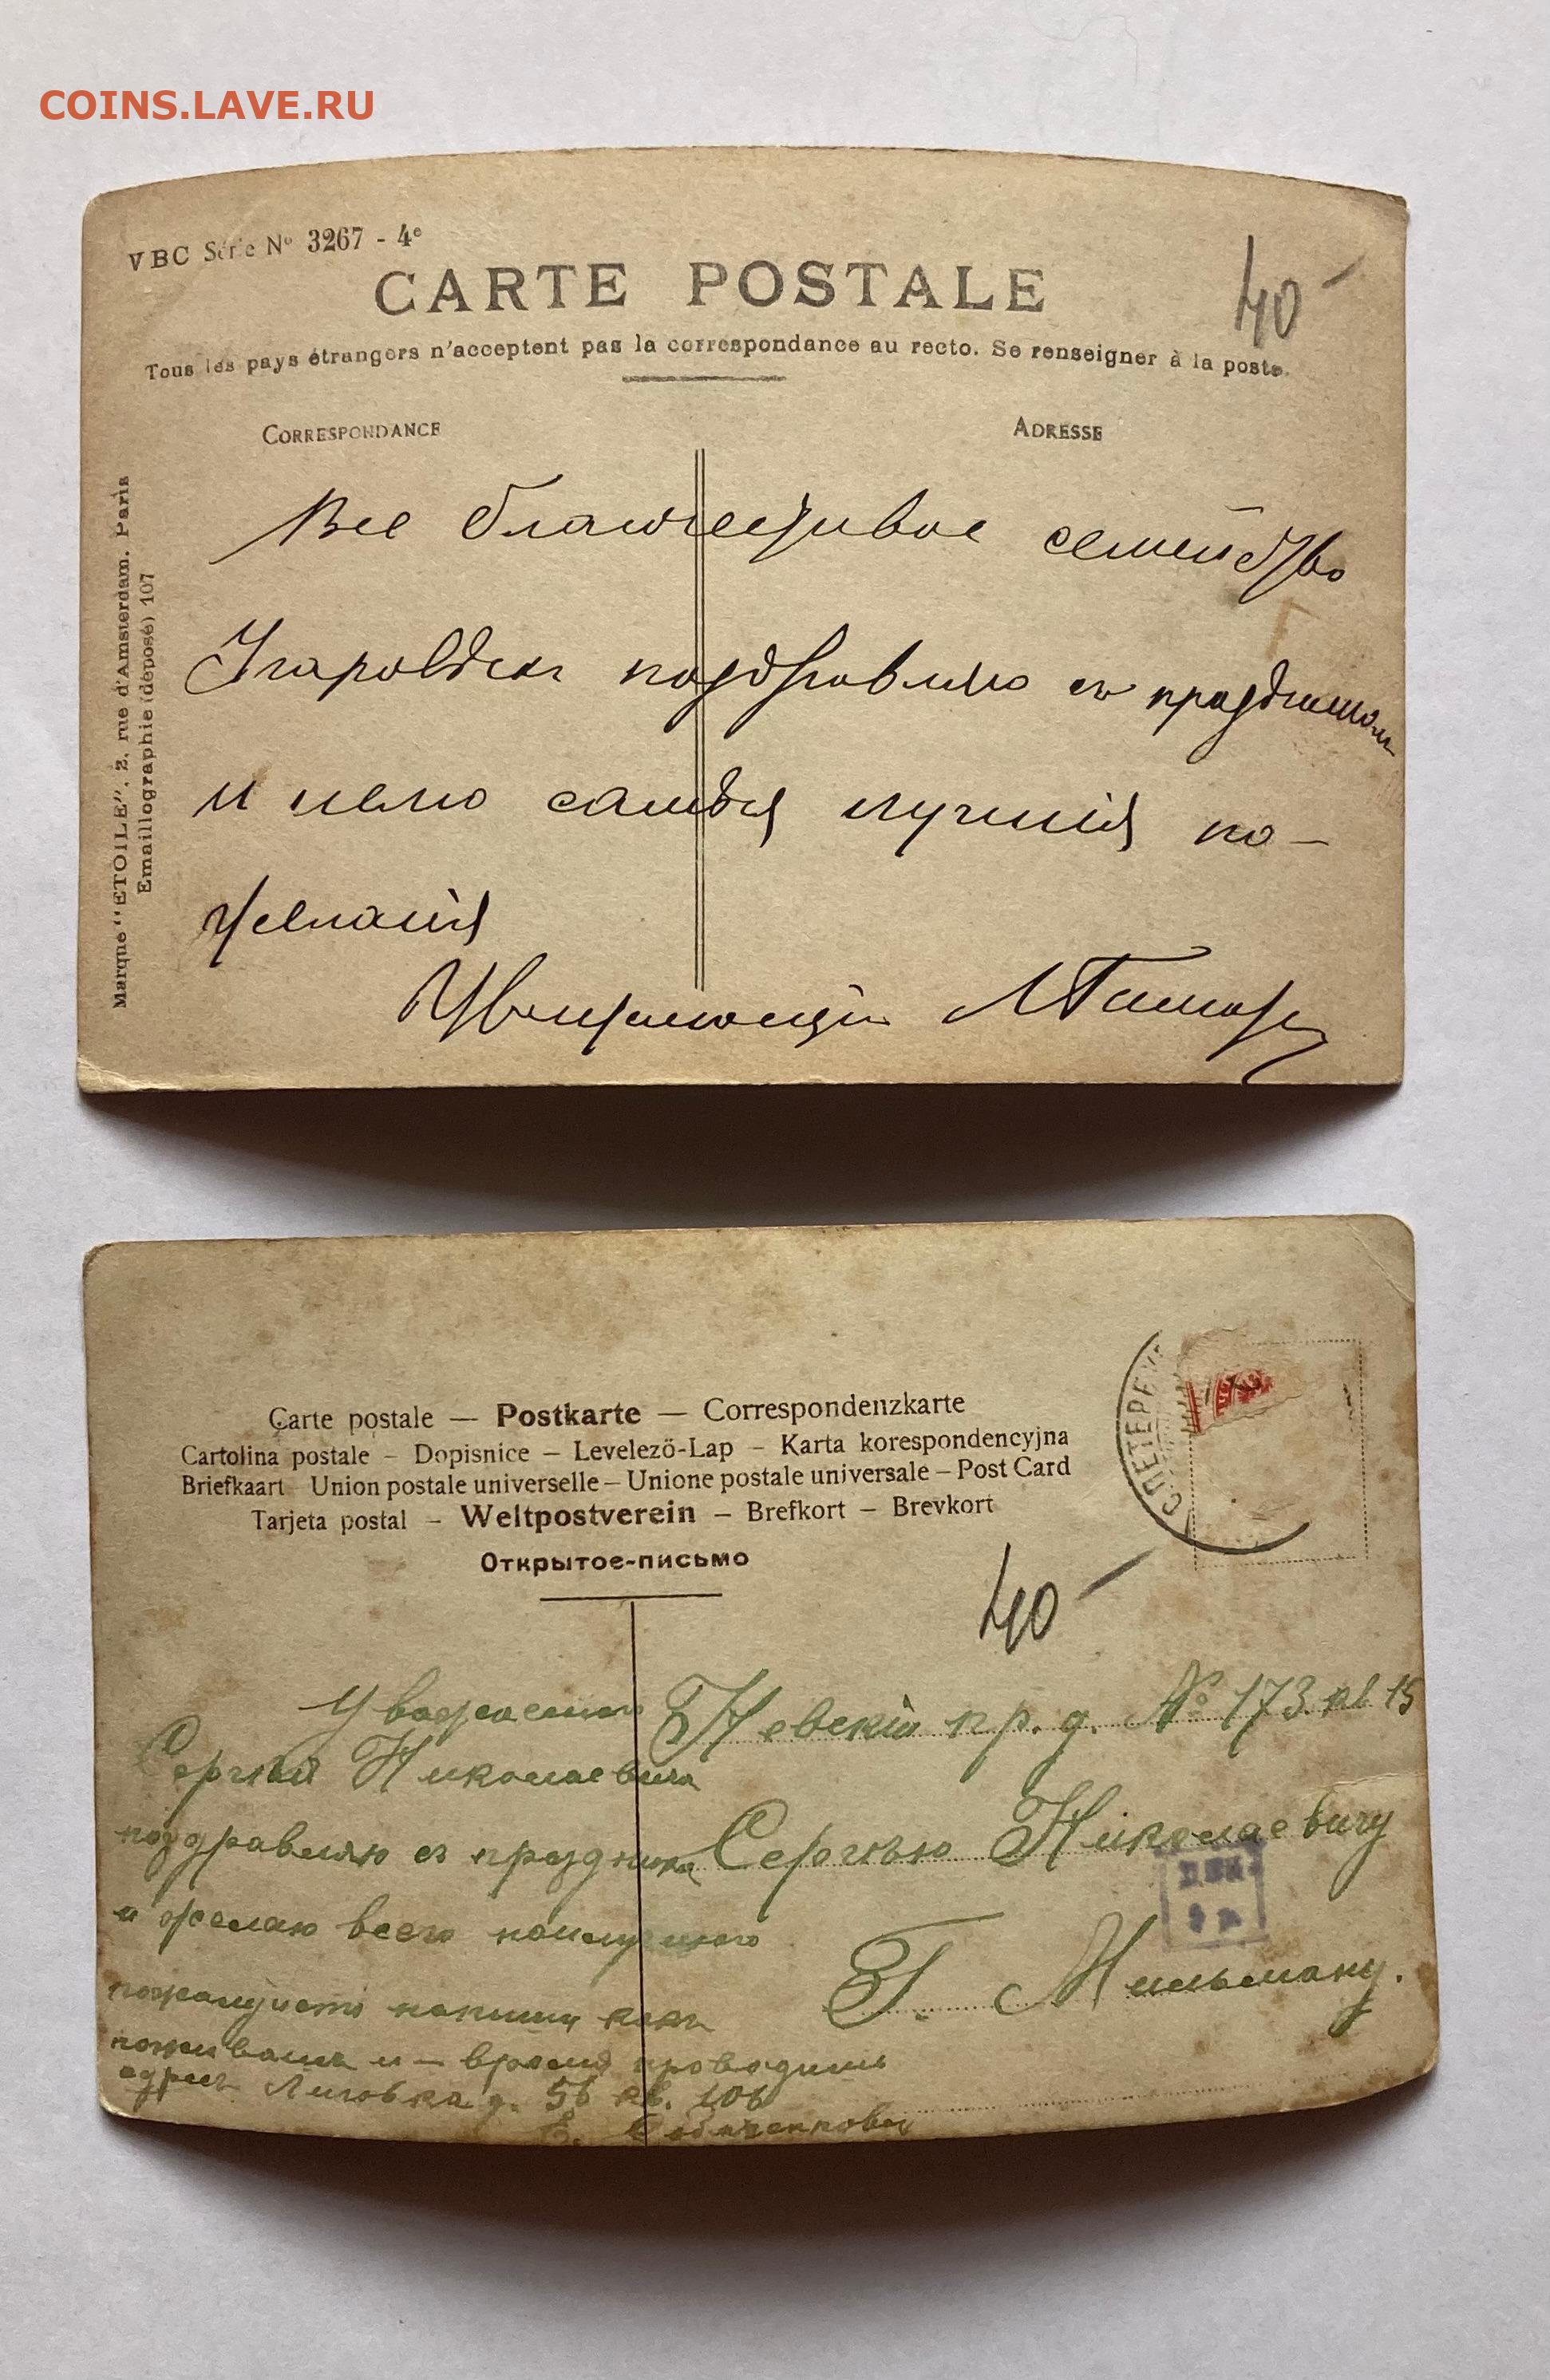 COINS.LAVE.RU
VBC Série No 3267 - 4e
CARTE POSTALE
40 –
Tous les pays étrangers n'acceptent pas la correspondance au recto. Se renseigner à la poste.
CORRESPONDANCE
ADRESSE
Marque "ETOILE", 2, rue d'Amsterdam. Paris
Emaillographie (déposé) 107
Все семейство
поздравляю съ праздникомъ
и шлю самыя лучшія по-
желанія
Carte postale — Postkarte — Correspondenzkarte
Cartolina postale – Dopisnice – Levelező-Lap – Karta korespondencyjna
Briefkaart Union postale universelle – Unione postale universale – Post Card
Tarjeta postal – Weltpostverein – Brefkort – Brevkort
Открытое-письмо
С.ПЕТЕРБУ
40 –
Невскій пр. д. № 173 кв 15
Сергѣю Николаевичу
Г. Мильману.
Сергѣй Николаевича
поздравляю съ праздника
и желаю всего наилучшаго
пожалуйста напиши какъ
поживаешь и – время проводишь
адресъ Лиговка д. 56 кв. 106